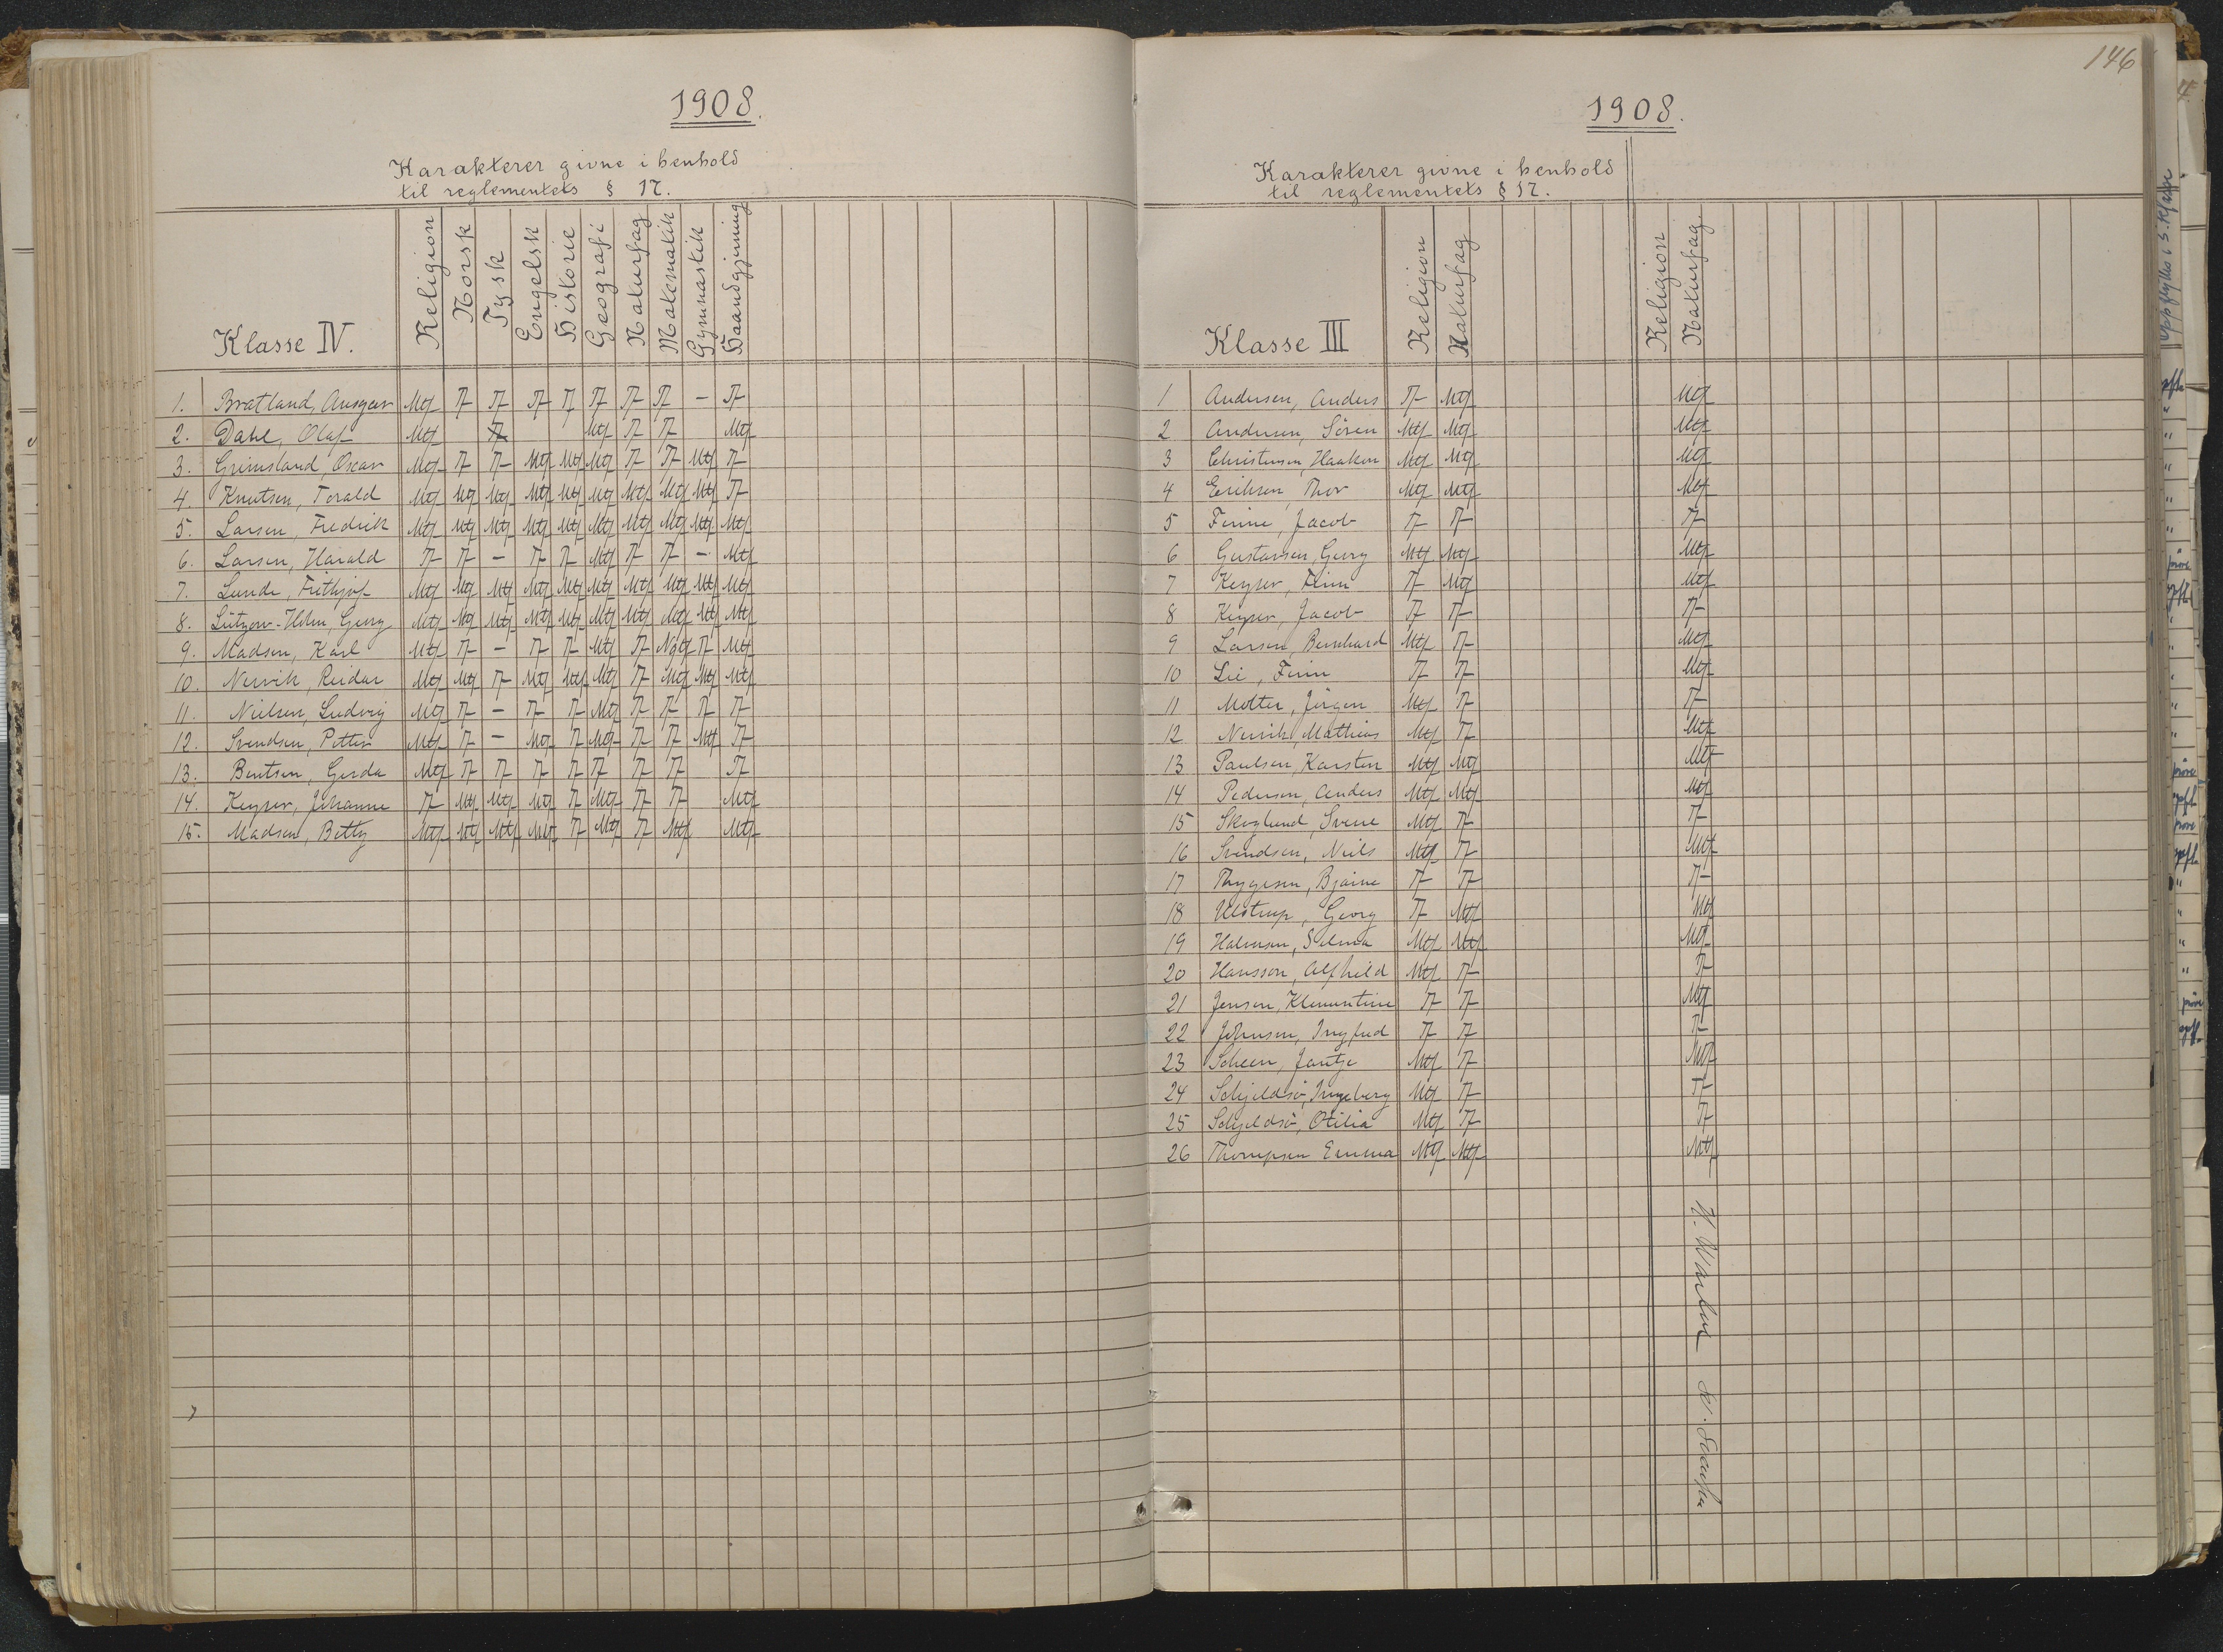 1908.
Karakterer givne i henhold
til reglementets § 17.
Klasse IV. Religion Norsk Tysk Engelsk Historie Geografi Naturfag Matematik Gymnastik Haandgjerning
1. Bratland, Ansgar Mtf T T T T T T T - T
2. Dahl, Olaf Mtf T Mtf T T Mtf
3. Grimsland, Oscar Mtf T T Mtf Mtf Mtf T T Mtf T
4. Knutsen, Torald Mtf Mtf Mtf Mtf Mtf Mtf Mtf Mtf Mtf T
5. Larsen, Fredrik Mtf Mtf Mtf Mtf Mtf Mtf Mtf Mtf Mtf Mtf
6. Larsen, Harald T T - T T Mtf T T - Mtf
7. Lunde, Frithjof Mtf Mtf Mtf Mtf Mtf Mtf Mtf Mtf Mtf Mtf
8. Lützow-Holm, Georg Mtf Mtf Mtf Mtf Mtf Mtf Mtf Mtf Mtf Mtf
9. Madsen, Karl Mtf T - T T Mtf T Ngtf T Mtf
10. Nervik, Reidar Mtf Mtf T Mtf Mtf Mtf T Mtf Mtf Mtf
11. Nielsen, Ludvig Mtf T - T T Mtf T T T T
12. Svendsen, Petter Mtf T - Mtf T Mtf T T Mtf T
13. Bentsen, Gerda Mtf T T T T T T T T
14. Keyser, Johanne T Mtf Mtf Mtf T Mtf T T Mtf
15. Madsen, Betty Mtf Mtf Mtf Mtf T Mtf T Mtf Mtf
146
1908.
Karakterer givne i henhold
til reglementets § 17.
Klasse III Religion Naturfag Religion Naturfag
1 Andersen, Anders T Mtf Mtf
2 Andersen, Sören Mtf Mtf Mtf
3 Christensen, Haakon Mtf Mtf Mtf
4 Eriksen, Thor Mtf Mtf Mtf
5 Finne, Jacob T T T
6 Gustavsen, Georg Mtf Mtf Mtf
7 Keyser, Finn T Mtf Mtf
8 Keyser, Jacob T T T
9 Larsen, Bernhard Mtf T Mtf
10 Lie, Finn T T Mtf
11 Møller, Jörgen Mtf T T
12 Nervik, Mathias Mtf T Mtf
13 Paulsen, Karsten Mtf Mtf Mtf
14 Pedersen, Anders Mtf Mtf Mtf
15 Skoglund, Sverre Mtf T T
16 Svendsen, Niels Mtf T Mtf
17 Thygesen, Bjarne T T T
18 Ulstrup, Georg T Mtf Mtf
19 Halvorsen, Selma Mtf Mtf Mtf
20 Hansson, Alfhild Mtf T T
21 Jensen, Klementine T T Mtf
22 Johnsen, Ingfred T T T
23 Scheen, Jantje Mtf T Mtf
24 Schjeldsö, Ingeborg Mtf T T
25 Schjeldsö, Otilia Mtf T T
26 Thompsen Emma Mtf Mtf Mtf